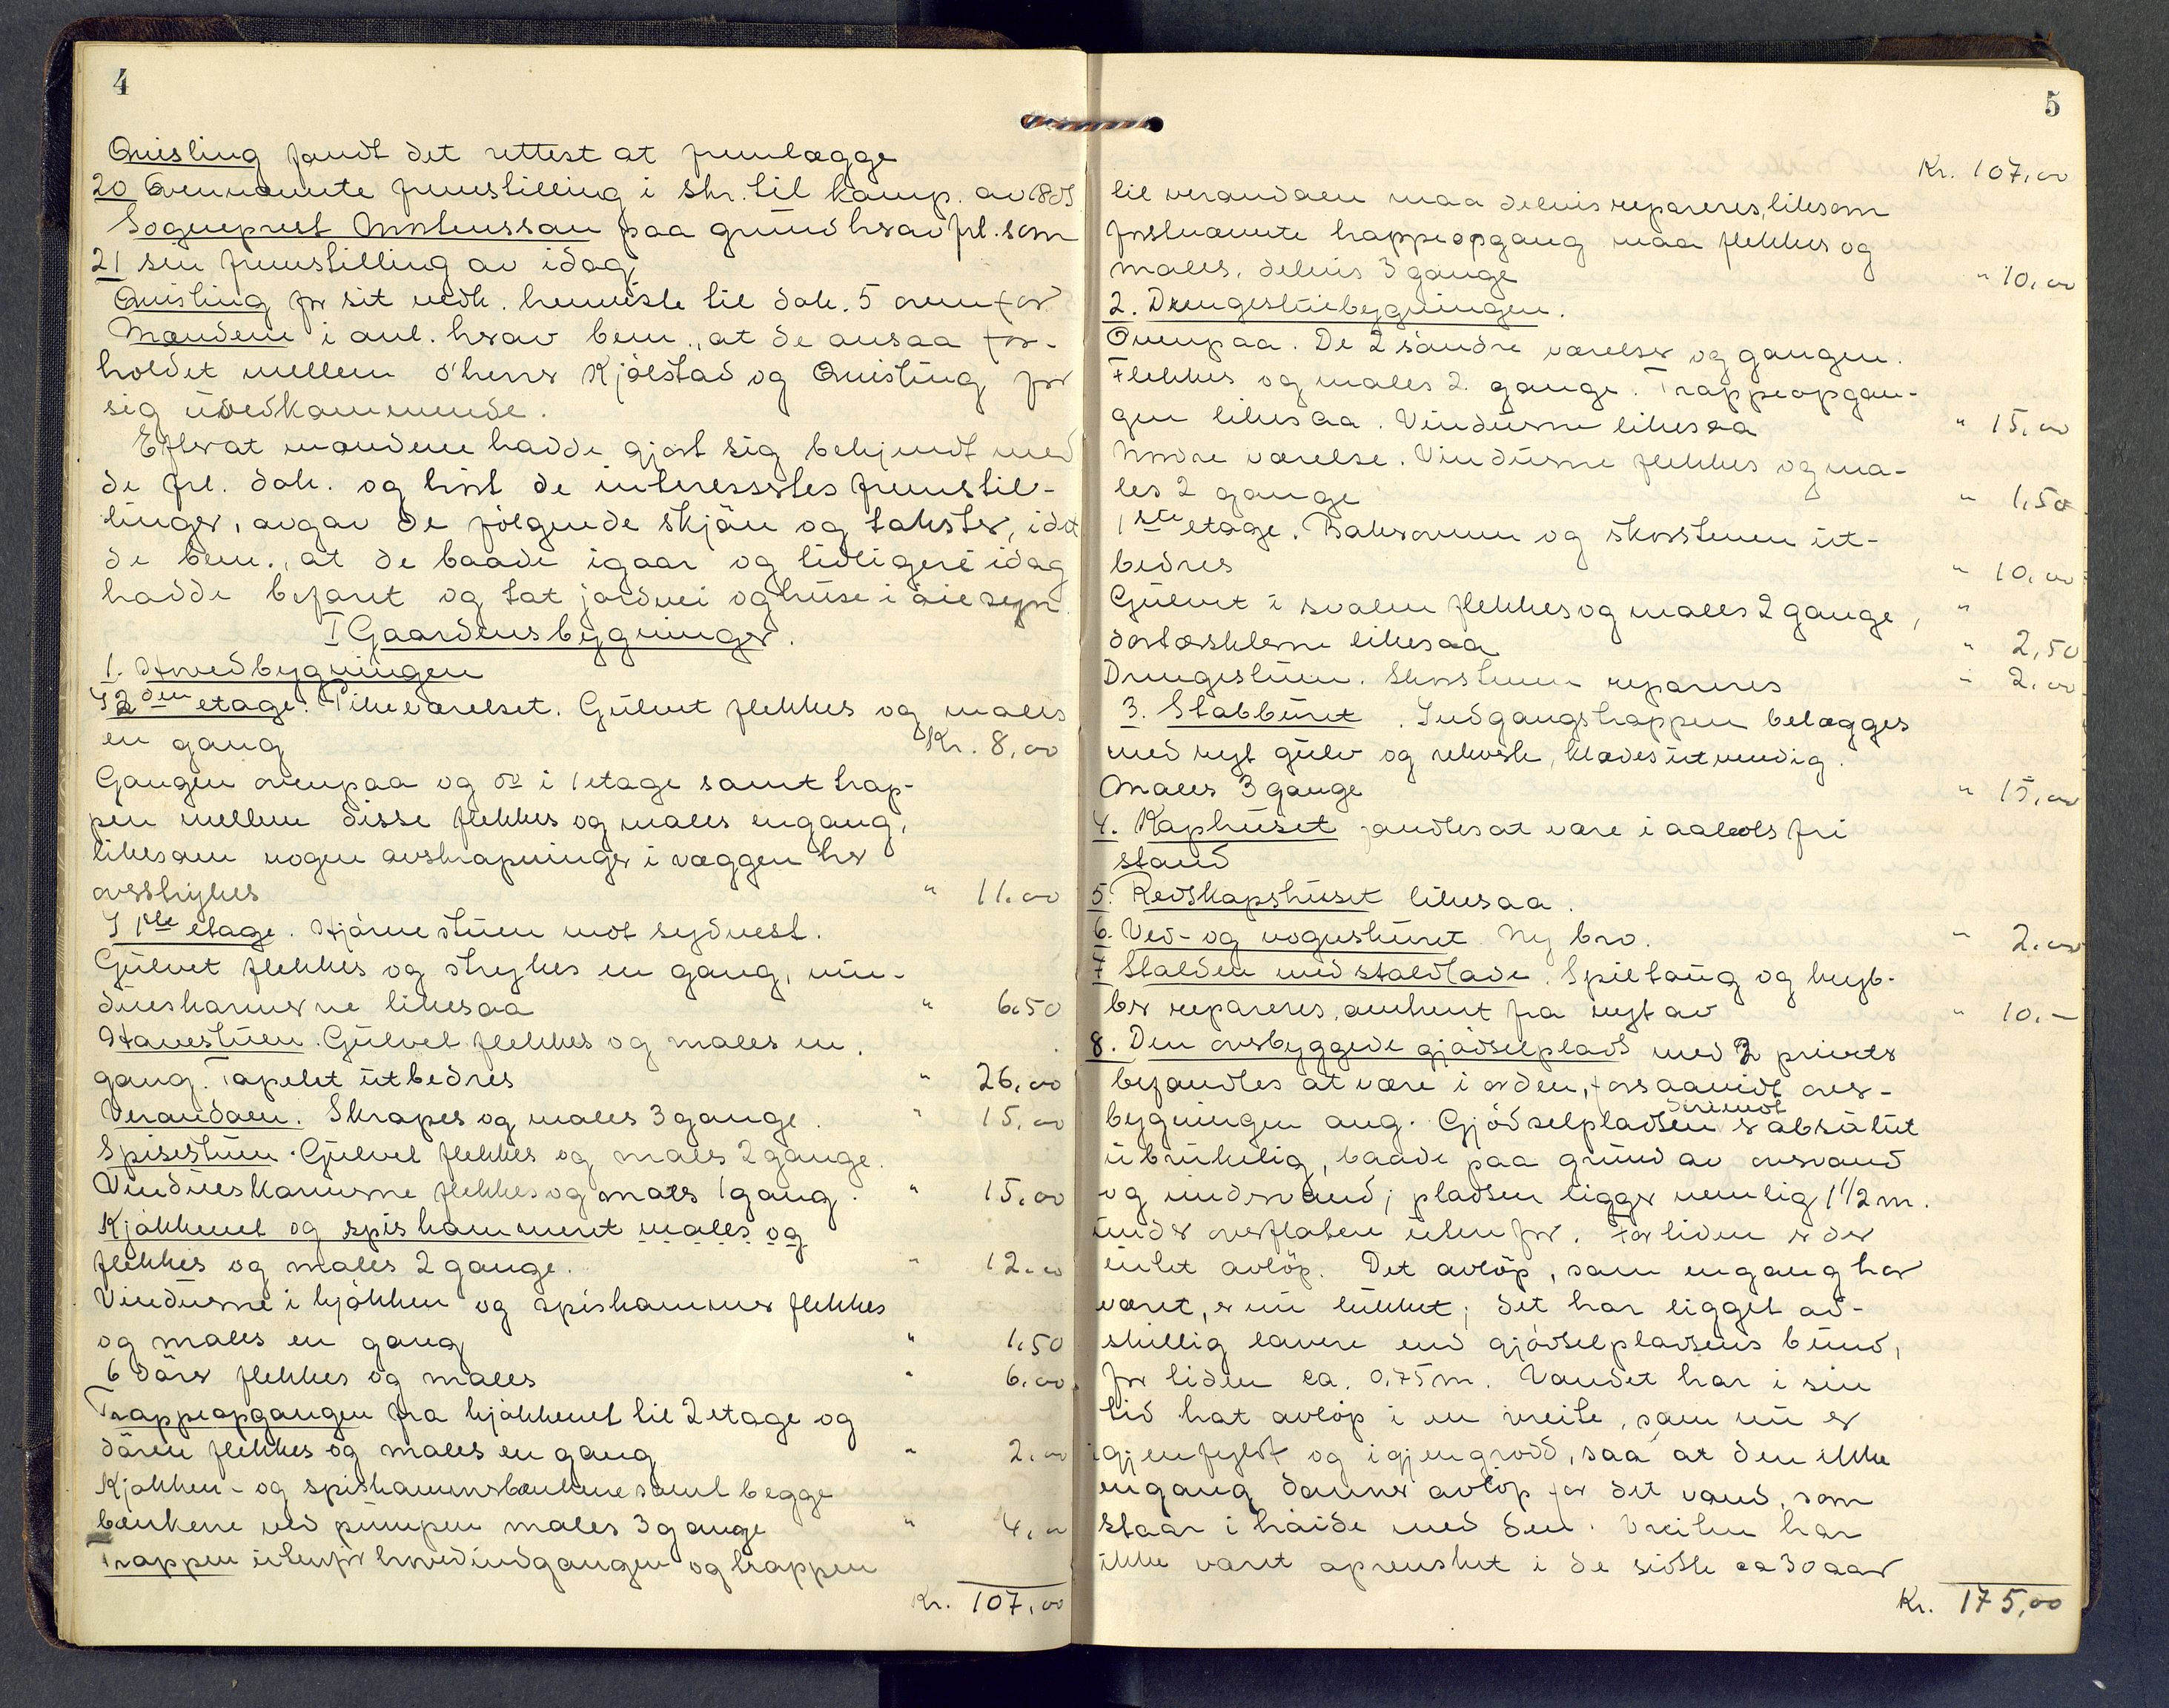 4
Quisling fandt det rettest at fremlægge
20 Ovennævnte fremstilling i skr. til komp. av 18ds
Sogneprest Mortenssøn paa grund herav frl. som
21 sin fremstilling av idag
Quisling for sit vedk. henviste til dok. 5 ovenfor
Mændene i anl. herav bem., at de ansaa for-
holdet mellem d'herrer Kjölstad og Quisling for
sig uvedkommende.
Efterat mændene hadde gjort sig bekjendt med
de frl. dok. og hört de interessertes fremstil-
linger, avgav de fölgende skjön og takster, idet
de bem., at de baade igaar og tidligere idag
hadde befaret og tat jordvei og huse i öiesyn.
I Gaardens bygninger.
1. Hovedbygningen
I 2den etage. Pikeværelset. Gulvet flekkes og males
en gang Kr. 8,00
Gangen ovenpaa og do i 1 etage samt trap-
pen mellem disse flekkes og males engang,
likesom nogen avskrapninger i væggen her
overstrykes " 11.00
I 1ste etage. Hjörnestuen mot sydvest.
Gulvet flekkes og strykes en gang, vin-
dueskarmerne likesaa " 6.50
Havestuen. Gulvet flekkes og males en
gang. Tapetet utbedres " 26,00
Verandaen. Skrapes og males 3 gange. " 15,00
Spisestuen. Gulvet flekkes og males 2 gange.
Vindueskarmerne flekkes og males 1 gang. " 15,00
Kjökkenet og spiskammeret males og
flekkes og males 2 gange. " 12.00
Vinduerne i kjökken og spiskammer flekkes
og males en gang " 1,50
6 dörer flekkes og males " 6.00
Trappeopgangen fra kjökkenet til 2 etage og
dören flekkes og males en gang " 2,00
Kjökken- og spiskammerbænkene samt begge
bænkene ved pumpen males 3 gange " 4,00
Trappen utenfor hovedindgangen og trappen
Kr. 107,00
5
Kr. 107,00
til verandaen maa delvis repareres, likesom
förstnævnte trappeopgang maa flekkes og
males, delvis 3 gange " 10,00
2. Drengestuebygningen.
Ovenpaa. De 2 söndre værelser og gangen.
Flekkes og males 2 gange. Trappeopgan-
gen likesaa. Vinduerne likesaa " 15,00
Nordre værelse. Vinduerne flekkes og ma-
les 2 gange " 1,50
1ste etage. Bakerovnen og skorstenen ut-
bedres " 10,00
Gulvet i svalen flekkes og males 2 gange, "
dörtærsklerne likesaa " 2,50
Drengestuen. Skorstenen repareres " 2,00
3. Stabburet. Indgangstrappen belægges
med nyt gulv og rekværk, klædes utvendig.
Males 3 gange " 15,00
4. Kaphuset fandtes at være i aabotsfri
stand
5. Redskapshuset likesaa.
6. Ved- og vognskuret. Ny bro. " 2.00
7 Stalden med staldlade. Spiltaug og kryb-
ber repareres, omtrent fra nyt av " 10.-
8. Den overbyggede gjödselplads med 2 priveter
befandtes at være i orden, forsaavidt over-
bygningen ang. Gjödselpladsen derimot er absolut
ubrukelig, baade paa grund av overvand
og undervand; pladsen ligger nemlig 1 1/2 m.
under overflaten utenfor. For tiden er der
intet avlöp. Det avlöp, som engang har
været, er nu lukket; det har ligget ad-
skillig lavere end gjödselpladsens bund,
for tiden ca. 0,75 m. Vandet har i sin
tid hat avlöp i en veite, som nu er
igjenfyldt og igjengrodd, saa at den ikke
engang danner avlöp for det vand, som
staar i höide med den. Veiten har
ikke været oprensket i de sidste ca 30 aar
Kr. 175,00